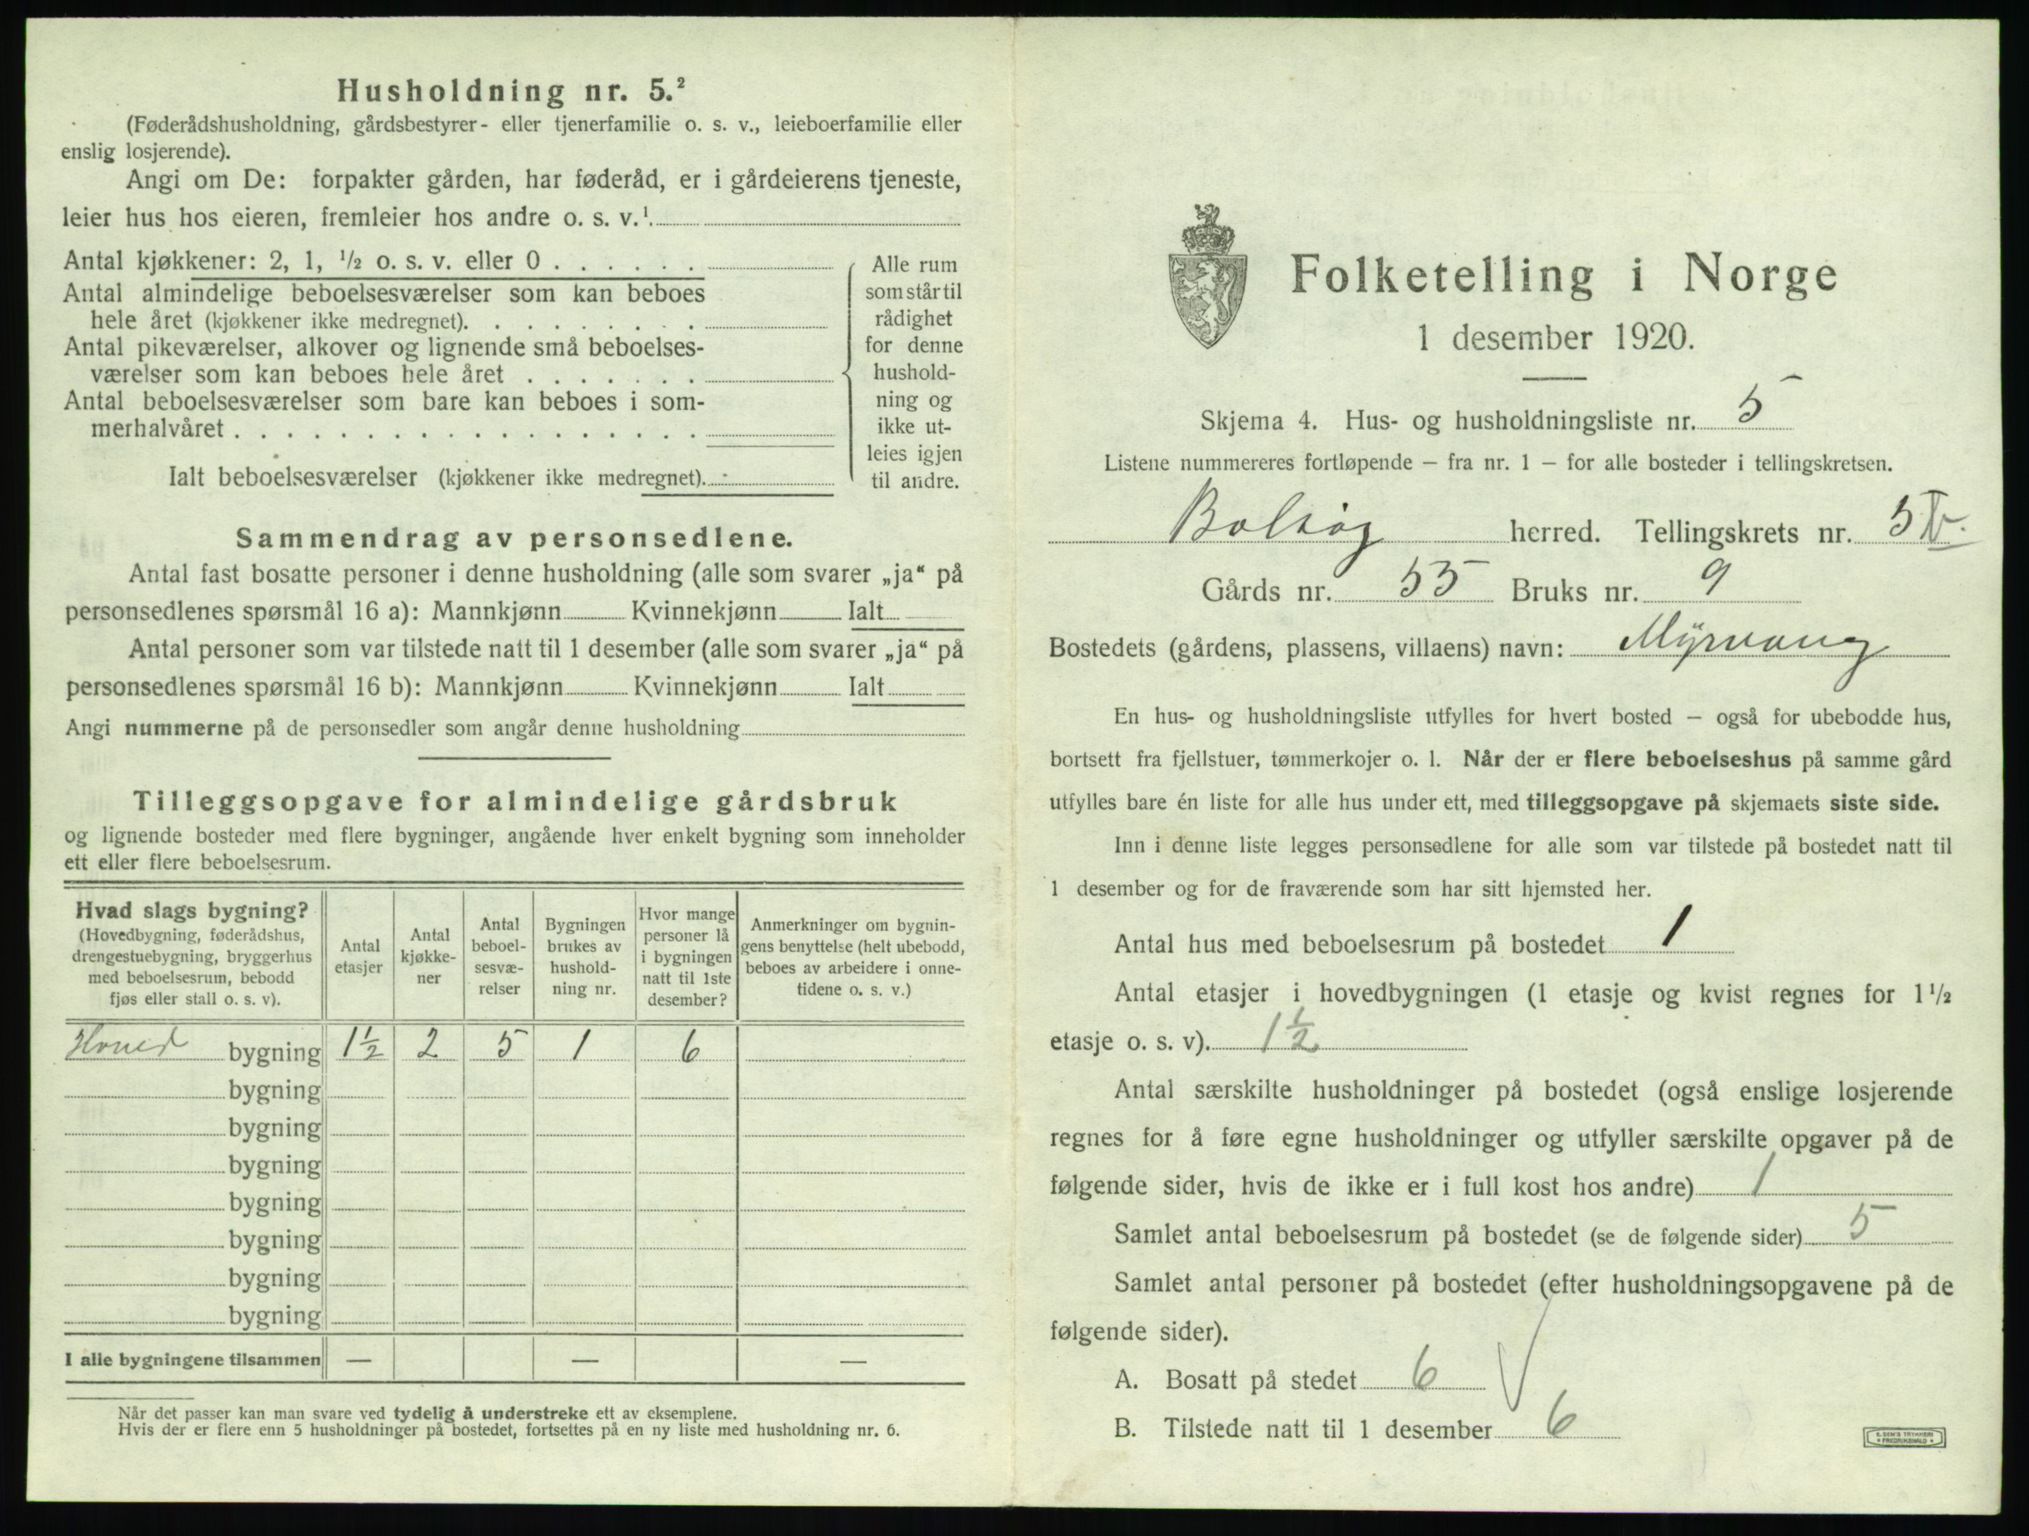 Husholdning nr. 5.²
(Føderådshusholdning, gårdsbestyrer- eller tjenerfamilie o. s. v., leieboerfamilie eller
enslig losjerende).
Angi om De: forpakter gården, har føderåd, er i gårdeierens tjeneste,
leier hus hos eieren, fremleier hos andre o. s. v.¹
Antal kjøkkener: 2, 1, ½ o. s. v. eller 0
Antal almindelige beboelsesværelser som kan beboes
hele året (kjøkkener ikke medregnet).
Antal pikeværelser, alkover og lignende små beboelses-
værelser som kan beboes hele året
Antal beboelsesværelser som bare kan beboes i som-
merhalvåret
Ialt beboelsesværelser (kjøkkener ikke medregnet).
Alle rum
som står til
rådighet
for denne
hushold-
ning og
ikke ut-
leies igjen
til andre.
Sammendrag av personsedlene.
Antal fast bosatte personer i denne husholdning (alle som svarer „ja“ på
personsedlenes spørsmål 16 a): Mannkjønn Kvinnekjønn Ialt
Antal personer som var tilstede natt til 1 desember (alle som svarer „ja“ på
personsedlenes spørsmål 16 b): Mannkjønn Kvinnekjønn Ialt
Angi nummerne på de personsedler som angår denne husholdning
Tilleggsopgave for almindelige gårdsbruk
og lignende bosteder med flere bygninger, angående hver enkelt bygning som inneholder
ett eller flere beboelsesrum.
Hvad slags bygning?
(Hovedbygning, føderådshus,
drengestuebygning, bryggerhus
med beboelsesrum, bebodd
fjøs eller stall o. s. v).
Antal
etasjer
Antal
kjøkke-
ner
Antal
beboel-
sesvæ-
relser
Bygningen
brukes av
hushold-
ning nr.
Hvor mange
personer lå
i bygningen
natt til 1ste
desember?
Anmerkninger om bygnin-
gens benyttelse (helt ubebodd,
beboes av arbeidere i onne-
tidene o. s. v.)
Hoved bygning 1½ 2 5 1 6
bygning
bygning
bygning
bygning
bygning
bygning
bygning
I alle bygningene tilsammen — — —
Når det passer kan man svare ved tydelig å understreke ett av eksemplene.
Hvis der er flere enn 5 husholdninger på bostedet, fortsettes på en ny liste med husholdning nr. 6.
Folketelling i Norge
1 desember 1920.
Skjema 4. Hus- og husholdningsliste nr. 5
Listene nummereres fortløpende – fra nr. 1 – for alle bosteder i tellingskretsen.
Bolsøy herred. Tellingskrets nr. 5
Gårds nr. 55 Bruks nr. 9
Bostedets (gårdens, plassens, villaens) navn: Myrvang
En hus- og husholdningsliste utfylles for hvert bosted – også for ubebodde hus,
bortsett fra fjellstuer, tømmerkojer o. l. Når der er flere beboelseshus på samme gård
utfylles bare én liste for alle hus under ett, med tilleggsopgave på skjemaets siste side.
Inn i denne liste legges personsedlene for alle som var tilstede på bostedet natt til
1 desember og for de fraværende som har sitt hjemsted her.
Antal hus med beboelsesrum på bostedet 1
Antal etasjer i hovedbygningen (1 etasje og kvist regnes for 1½
etasje o. s. v). 1½
Antal særskilte husholdninger på bostedet (også enslige losjerende
regnes for å føre egne husholdninger og utfyller særskilte opgaver på de
følgende sider, hvis de ikke er i full kost hos andre) 1
Samlet antal beboelsesrum på bostedet (se de følgende sider) 5
Samlet antal personer på bostedet (efter husholdningsopgavene på de
følgende sider).
A. Bosatt på stedet 6
B. Tilstede natt til 1 desember 6